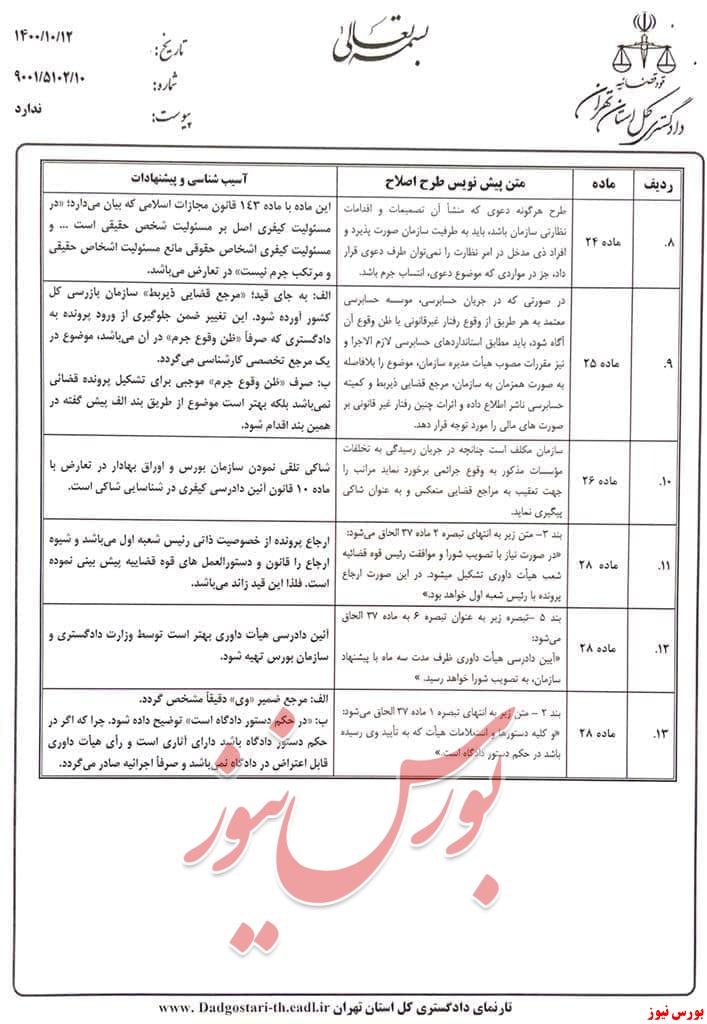 بسمه تعالی
قوه قضائیه
دادگستری کل استان تهران
تاریخ: ۱۴۰۰/۱۰/۱۲
شماره: ۹۰۰۱/۵۱۰۲/۱۰
پیوست: ندارد
ردیف ماده متن پیش نویس طرح اصلاح آسیب شناسی و پیشنهادات
۸. ماده ۲۴
طرح هرگونه دعوی که منشأ آن تصمیمات و اقدامات
نظارتی سازمان باشد، باید به طرفیت سازمان صورت پذیرد و
افراد ذی مدخل در امر نظارت را نمی‌توان طرف دعوی قرار
داد، جز در مواردی که موضوع دعوی، انتساب جرم باشد.
این ماده با ماده ۱۴۳ قانون مجازات اسلامی که بیان می‌دارد؛ «در
مسئولیت کیفری اصل بر مسئولیت شخص حقیقی است ... و
مسئولیت کیفری اشخاص حقوقی مانع مسئولیت اشخاص حقیقی
و مرتکب جرم نیست» در تعارض می‌باشد.
۹. ماده ۲۵
در صورتی که در جریان حسابرسی، موسسه حسابرسی
معتمد به هر طریق از وقوع رفتار غیرقانونی یا ظن وقوع آن
آگاه شود، باید مطابق استانداردهای حسابرسی لازم الاجرا و
نیز مقررات مصوب هیأت مدیره سازمان، موضوع را بلافاصله
به صورت همزمان به سازمان، مرجع قضایی ذیربط و کمیته
حسابرسی ناشر اطلاع داده و اثرات چنین رفتار غیر قانونی بر
صورت های مالی را مورد توجه قرار دهد.
الف: به جای قید؛ «مرجع قضایی ذیربط» سازمان بازرسی کل
کشور آورده شود. این تغییر ضمن جلوگیری از ورود پرونده به
دادگستری که صرفاً «ظن وقوع جرم» در آن می‌باشد، موضوع در
یک مرجع تخصصی کارشناسی می‌گردد.
ب: صرف «ظن وقوع جرم» موجبی برای تشکیل پرونده قضائی
نمی‌باشد بلکه بهتر است موضوع از طریق بند الف پیش گفته در
همین بند اقدام شود.
۱۰. ماده ۲۶
سازمان مکلف است چنانچه در جریان رسیدگی به تخلفات
مؤسسات مذکور به وقوع جرائمی برخورد نماید مراتب را
جهت تعقیب به مراجع قضایی منعکس و به عنوان شاکی
پیگیری نماید.
شاکی تلقی نمودن سازمان بورس و اوراق بهادار در تعارض با
ماده ۱۰ قانون آئین دادرسی کیفری در شناسایی شاکی است.
۱۱. ماده ۲۸
بند ۳- متن زیر به انتهای تبصره ۲ ماده ۳۷ الحاق می‌شود:
«در صورت نیاز با تصویب شورا و موافقت رئیس قوه قضائیه
شعب هیأت داوری تشکیل میشود. در این صورت ارجاع
پرونده با رئیس شعبه اول خواهد بود.»
ارجاع پرونده از خصوصیت ذاتی رئیس شعبه اول می‌باشد و شیوه
ارجاع را قانون و دستورالعمل های قوه قضاییه پیش بینی نموده
است. فلذا این قید زائد می‌باشد.
۱۲. ماده ۲۸
بند ۵ -تبصره زیر به عنوان تبصره ۶ به ماده ۳۷ الحاق
می‌شود:
«آیین دادرسی هیأت داوری ظرف مدت سه ماه با پیشنهاد
سازمان، به تصویب شورا خواهد رسید. »
آئین دادرسی هیأت داوری بهتر است توسط وزارت دادگستری و
سازمان بورس تهیه شود.
۱۳. ماده ۲۸
بند ۲ - متن زیر به انتهای تبصره ۱ ماده ۳۷ الحاق می‌شود:
«و کلیه دستورها و استعلامات هیأت که به تأیید وی رسیده
باشد در حکم دستور دادگاه است.»
الف: مرجع ضمیر «وی» دقیقاً مشخص گردد.
ب: «در حکم دستور دادگاه است» توضیح داده شود. چرا که اگر در
حکم دستور دادگاه باشد دارای آثاری است و رأی هیأت داوری
قابل اعتراض در دادگاه نمی‌باشد و صرفاً اجرائیه صادر می‌گردد.
بورس نیوز
تارنمای دادگستری کل استان تهران www. Dadgostari-th.eadl.ir
بورس نیوز